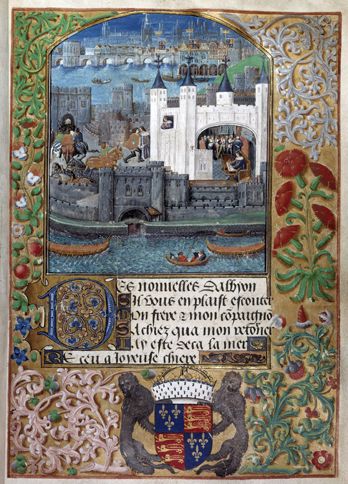 Des nouuelles dalbyon
Sil vous en plaist escouter
Mon frere & mon compaigno
Sachez qua mon retorner
Jay este deca la mer
Receu a Joyeuse chiere